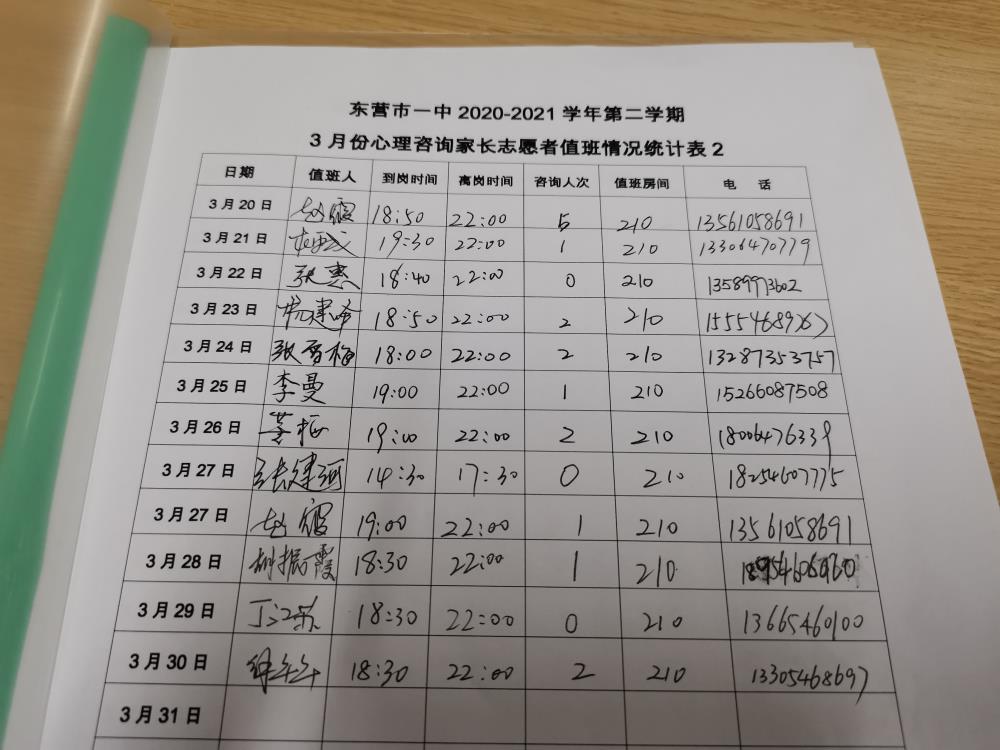 东营市一中 2020-2021 学年第二学期
3 月份心理咨询家长志愿者值班情况统计表 2
日期 值班人 到岗时间 离岗时间 咨询人次 值班房间 电 话
3 月 20 日 赵霞 18:50 22:00 5 210 13561058691
3 月 21 日 19:30 22:00 1 210 13306470779
3 月 22 日 张惠 18:40 22:00 0 210 13589973602
3 月 23 日 18:50 22:00 2 210
3 月 24 日 张雪梅 18:00 22:00 2 210 13287353757
3 月 25 日 李曼 19:00 22:00 1 210 15266087508
3 月 26 日 19:00 22:00 2 210 18006476339
3 月 27 日 张建河 14:30 17:30 0 210 18254607775
3 月 27 日 赵霞 19:00 22:00 1 210 13561058691
3 月 28 日 胡振霞 18:30 22:00 1 210
3 月 29 日 18:30 22:00 0 210 13665460100
3 月 30 日 18:30 22:00 2 210 13305468697
3 月 31 日